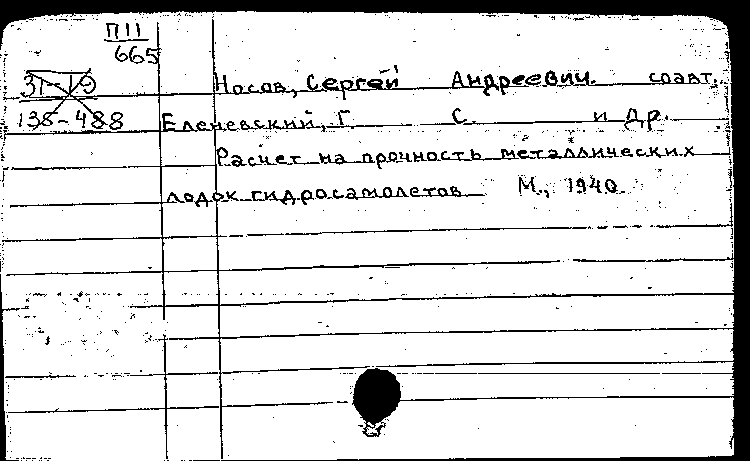 П11
665
31-19
138-488
Носов, Сергей Андреевич. соавт.
Еленевский, Г. С. и др.
Расчет на прочность металлических
лодок гидросамолетов М., 1940.